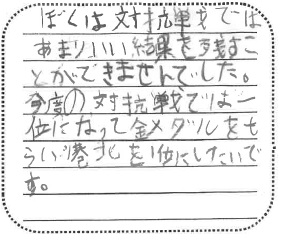 ぼくは対抗戦では
あまりいい結果を残すこ
とができませんでした。
今度の対抗戦では一
位になって金メダルをも
らい港北を1位にしたいで
す。